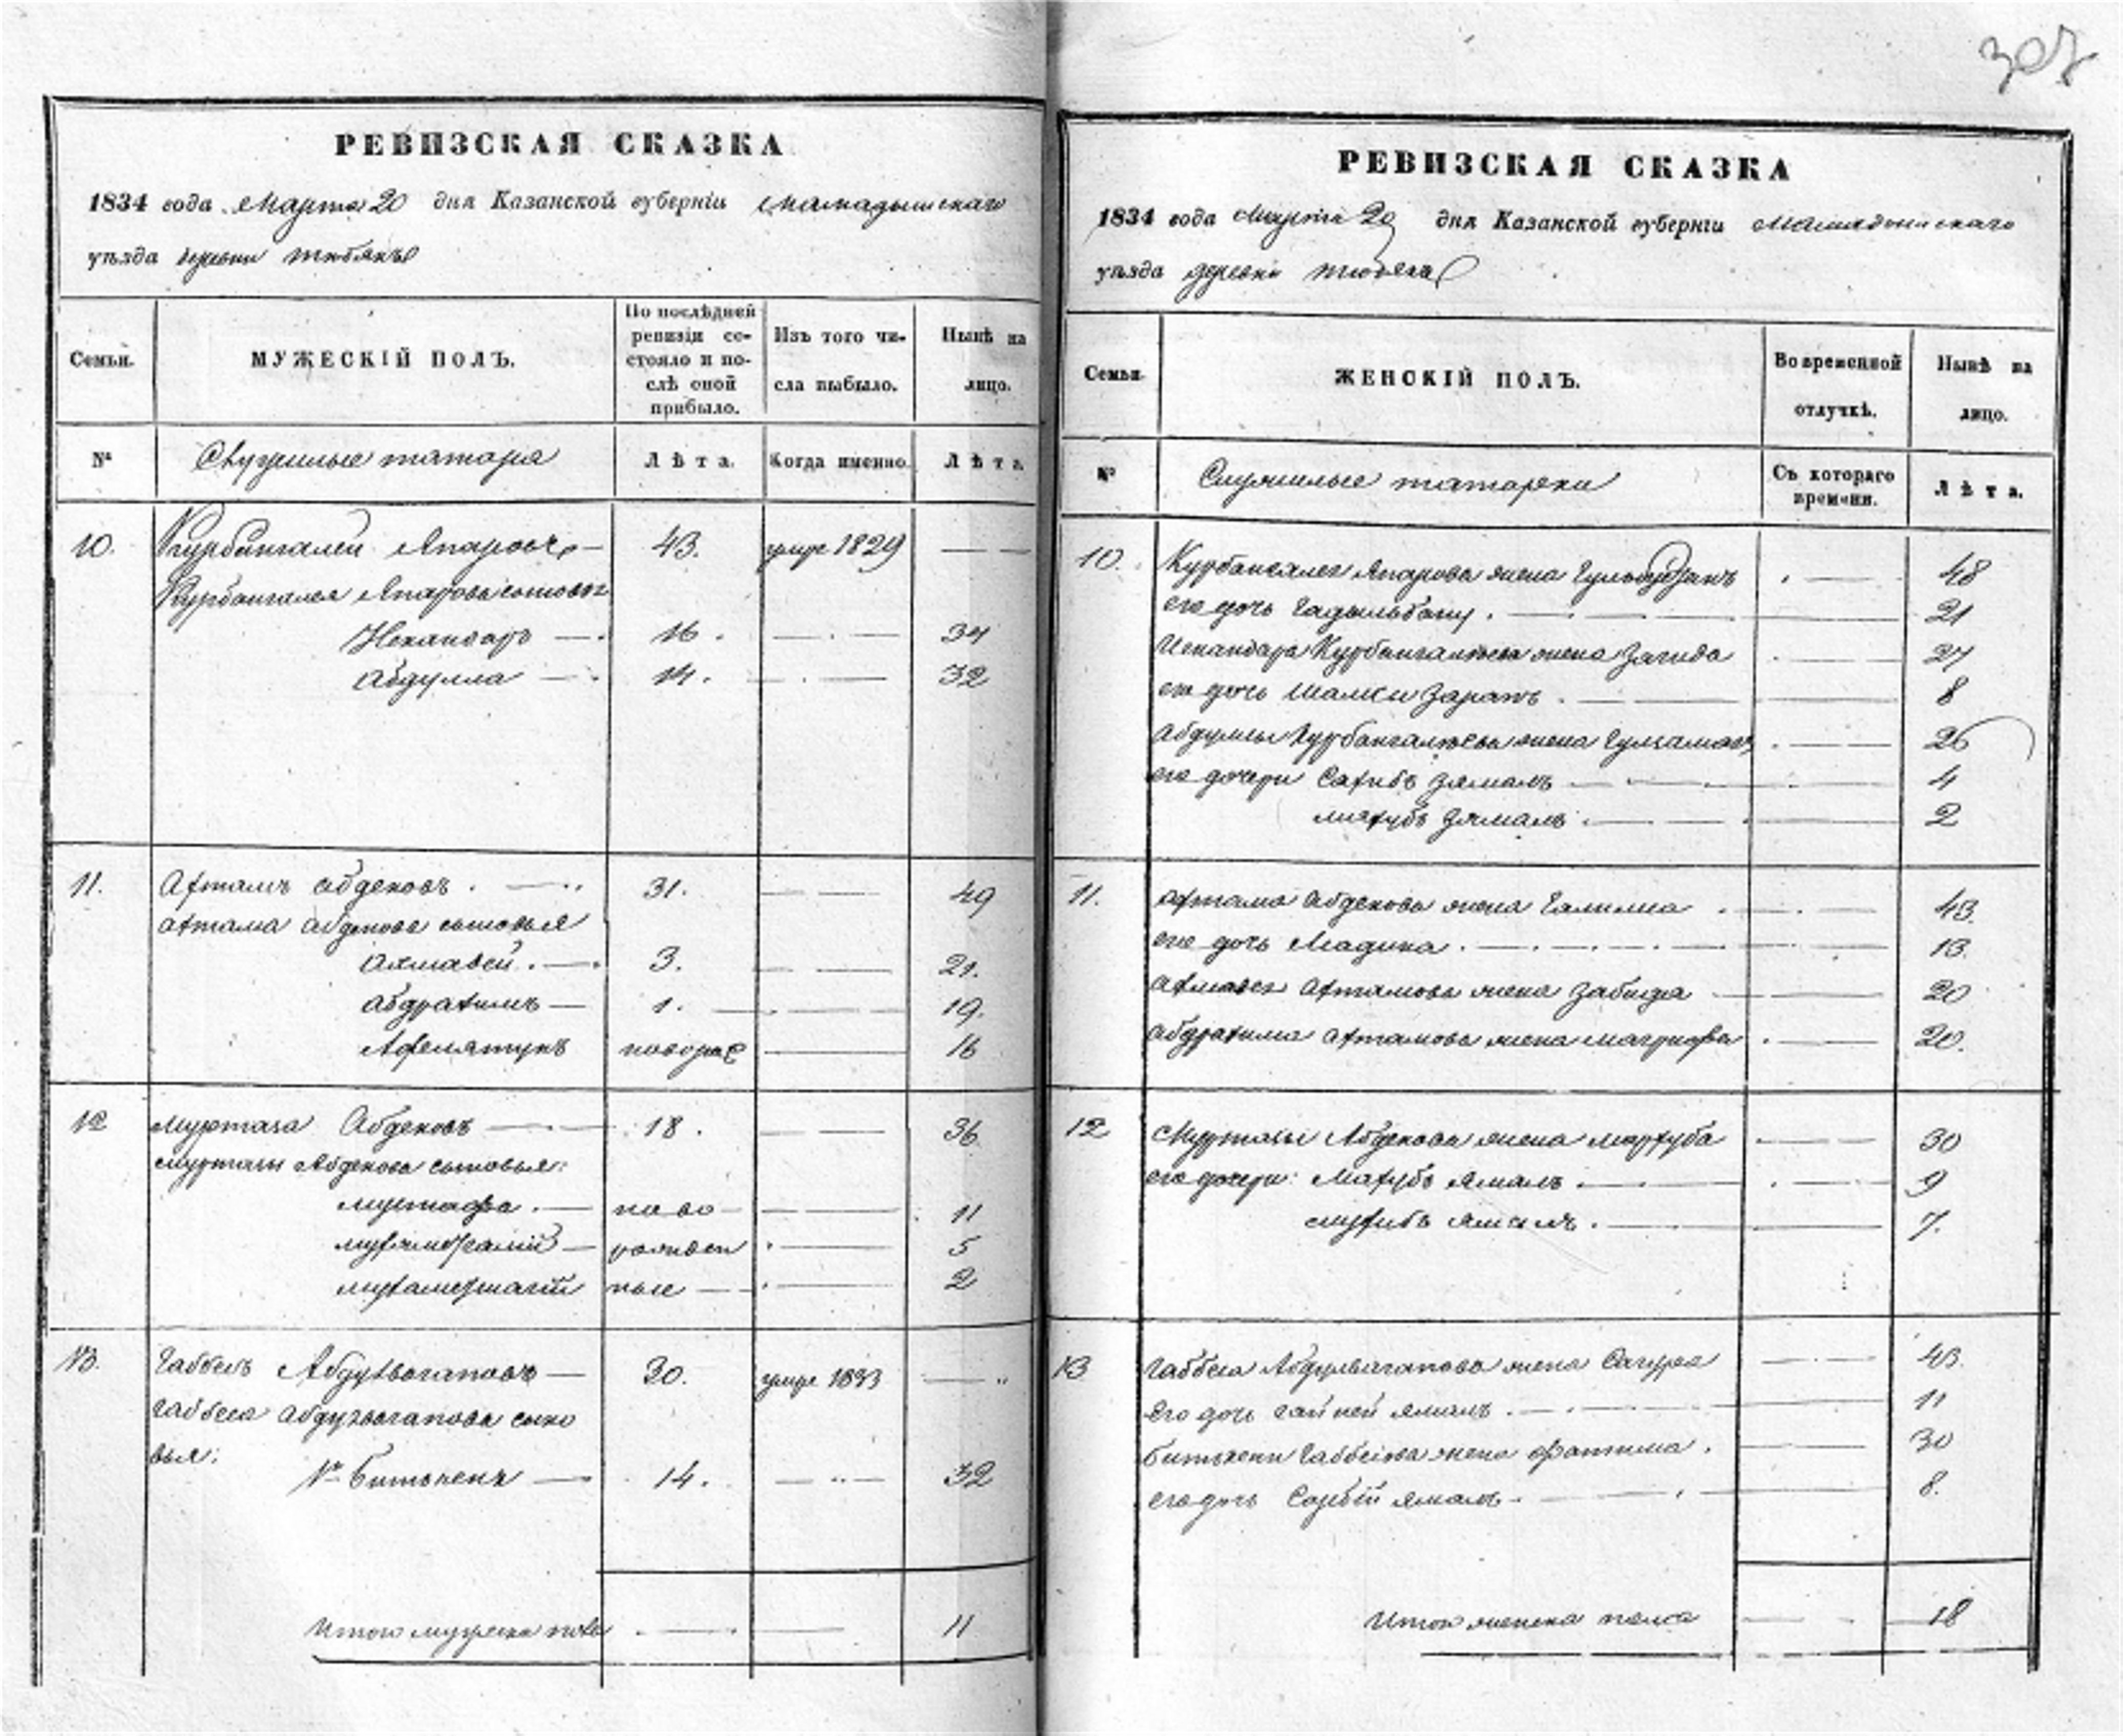 307
РЕВИЗСКАЯ СКАЗКА
1834 года Марта 20 дня Казанской губернiи Мамадышскаго
уѣзда деревни Тюбякъ
Семьи. МУЖЕСКIЙ ПОЛЪ. По послѣдней ревизiи состояло и послѣ оной прибыло. Изъ того числа выбыло. Нынѣ на лицо.
№ Служилые татара Лѣта. Когда именно. Лѣта.
10. Курбангалей Япаровъ — 43. умре 1829 — —
Курбангалея Япарова сыновья
Искандарь — 16. — 34
Абдулла — 14. — 32
11. Ахтамъ Абдековъ. — 31. — 49
Ахтама Абдекова сыновья
Ахмавей. — 3. — 21.
Абдрахимъ — 1. — 19.
Афелятунъ новорож — 16
12 Муртаза Абдековъ — 18. — 36
Муртазы Абдекова сыновья:
Мустафа. — ново — 11
— рожден — 5
— ные — 2
13. Габбасъ — 30. умре 1833 —
Габбаса сыно
вья:
1й Битькени — 14. — 32
Итого мужеска пола — 11
РЕВИЗСКАЯ СКАЗКА
1834 года Марта 20 дня Казанской губернiи Мамадышскаго
уѣзда деревни Тюбяка
Семьи. ЖЕНСКIЙ ПОЛЪ. Во временной отлучкѣ. Нынѣ на лицо.
№ Служилые татарки Съ котораго времени. Лѣта.
10. Курбангалея Япарова жена — 48
его дочь Гадыльбану. — 21
Искандара Курбангалѣева жена Загида — 27
его дочь Шамси Зарапъ. — 8
Абдуллы Курбангалѣева жена — 26
его дочери Сахибъ Зямаль — 4
Махубъ Зямаль. — 2
11. Ахтама Абдекова жена Галима — 43.
его дочь Мадина. — 13.
Ахмавея Ахтамова жена Забида — 20
Абдрахима Ахтамова жена — 20.
12 Муртазы Абдекова жена Мархуба — 30
его дочери: Махубъ Ямаль. — 9
Мухибъ Ямаль. — 7.
13 Габбаса жена Сагура — 43.
Его дочь Гайней Ямаль. — 11
Битькени Габбасова жена Фатима. — 30
его дочь Сарбiй Ямаль. — 8.
Итого женска пола — 18